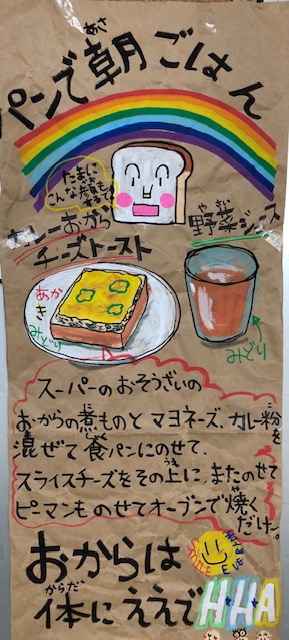 パンで朝ごはん
あさ
たまに
こんな顔も
するで。
カレーおから
チーズトースト
野菜ジュース
やさい
あか
き
みどり
みどり
スーパーのおそうざいの
おからの煮ものとマヨネーズ、カレー粉を
混ぜて食パンにのせて、
スライスチーズをその上に、またのせて
ピーマンものせてオーブンで焼くだけ。
おからは
体にええで
からだ
HHA